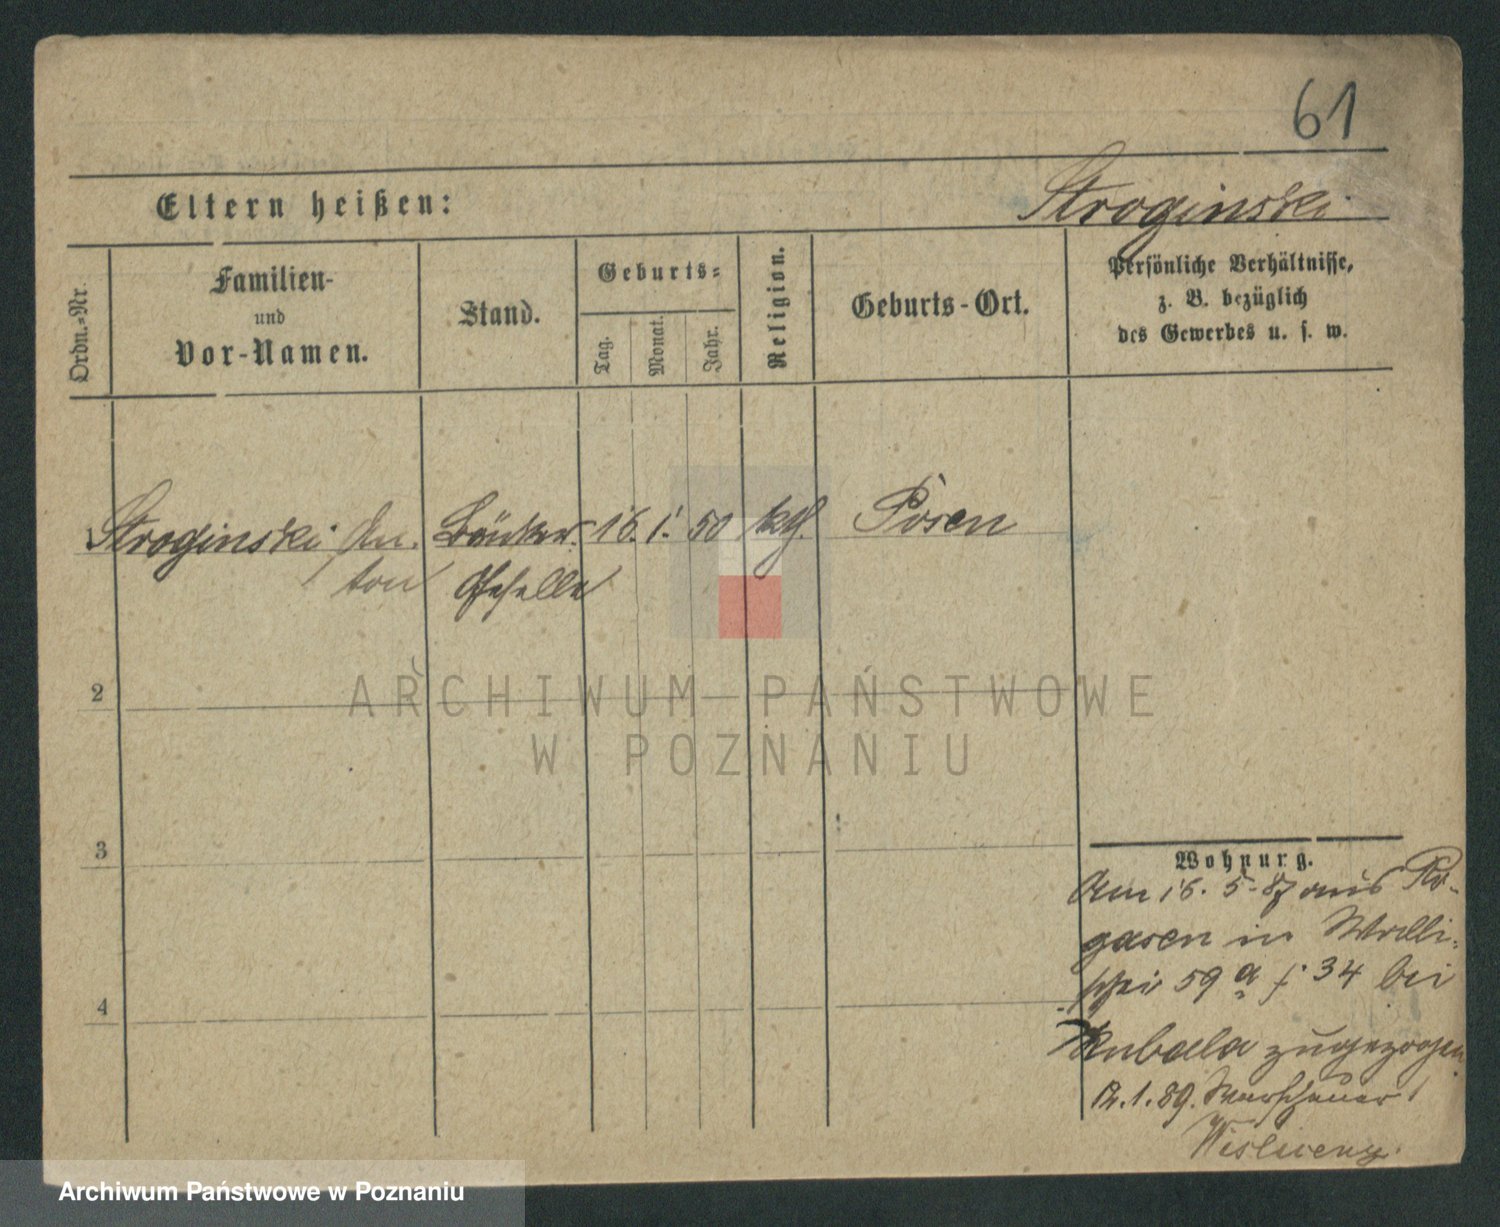 61
Stroginski
Eltern heißen:
Ordn.-Nr.
Familien-
und
Vor-Namen.
Stand.
Geburts-
Tag.
Monat.
Jahr.
Religion.
Geburts-Ort.
Persönliche Verhältnisse,
z. B. bezüglich
des Gewerbes u. s. w.
Stroginski, An- 16. 1. 50 kth. Posen
ton Geselle
2
ARCHIWUM PAŃSTWOWE
W POZNANIU
3
4
Wohnung.
Am 16. 5. 87 aus Ro-
gasen in Walli-
schei 59 a 34 bei
Kubala zugezogen
12. 1. 89. Warschauer
Archiwum Państwowe w Poznaniu